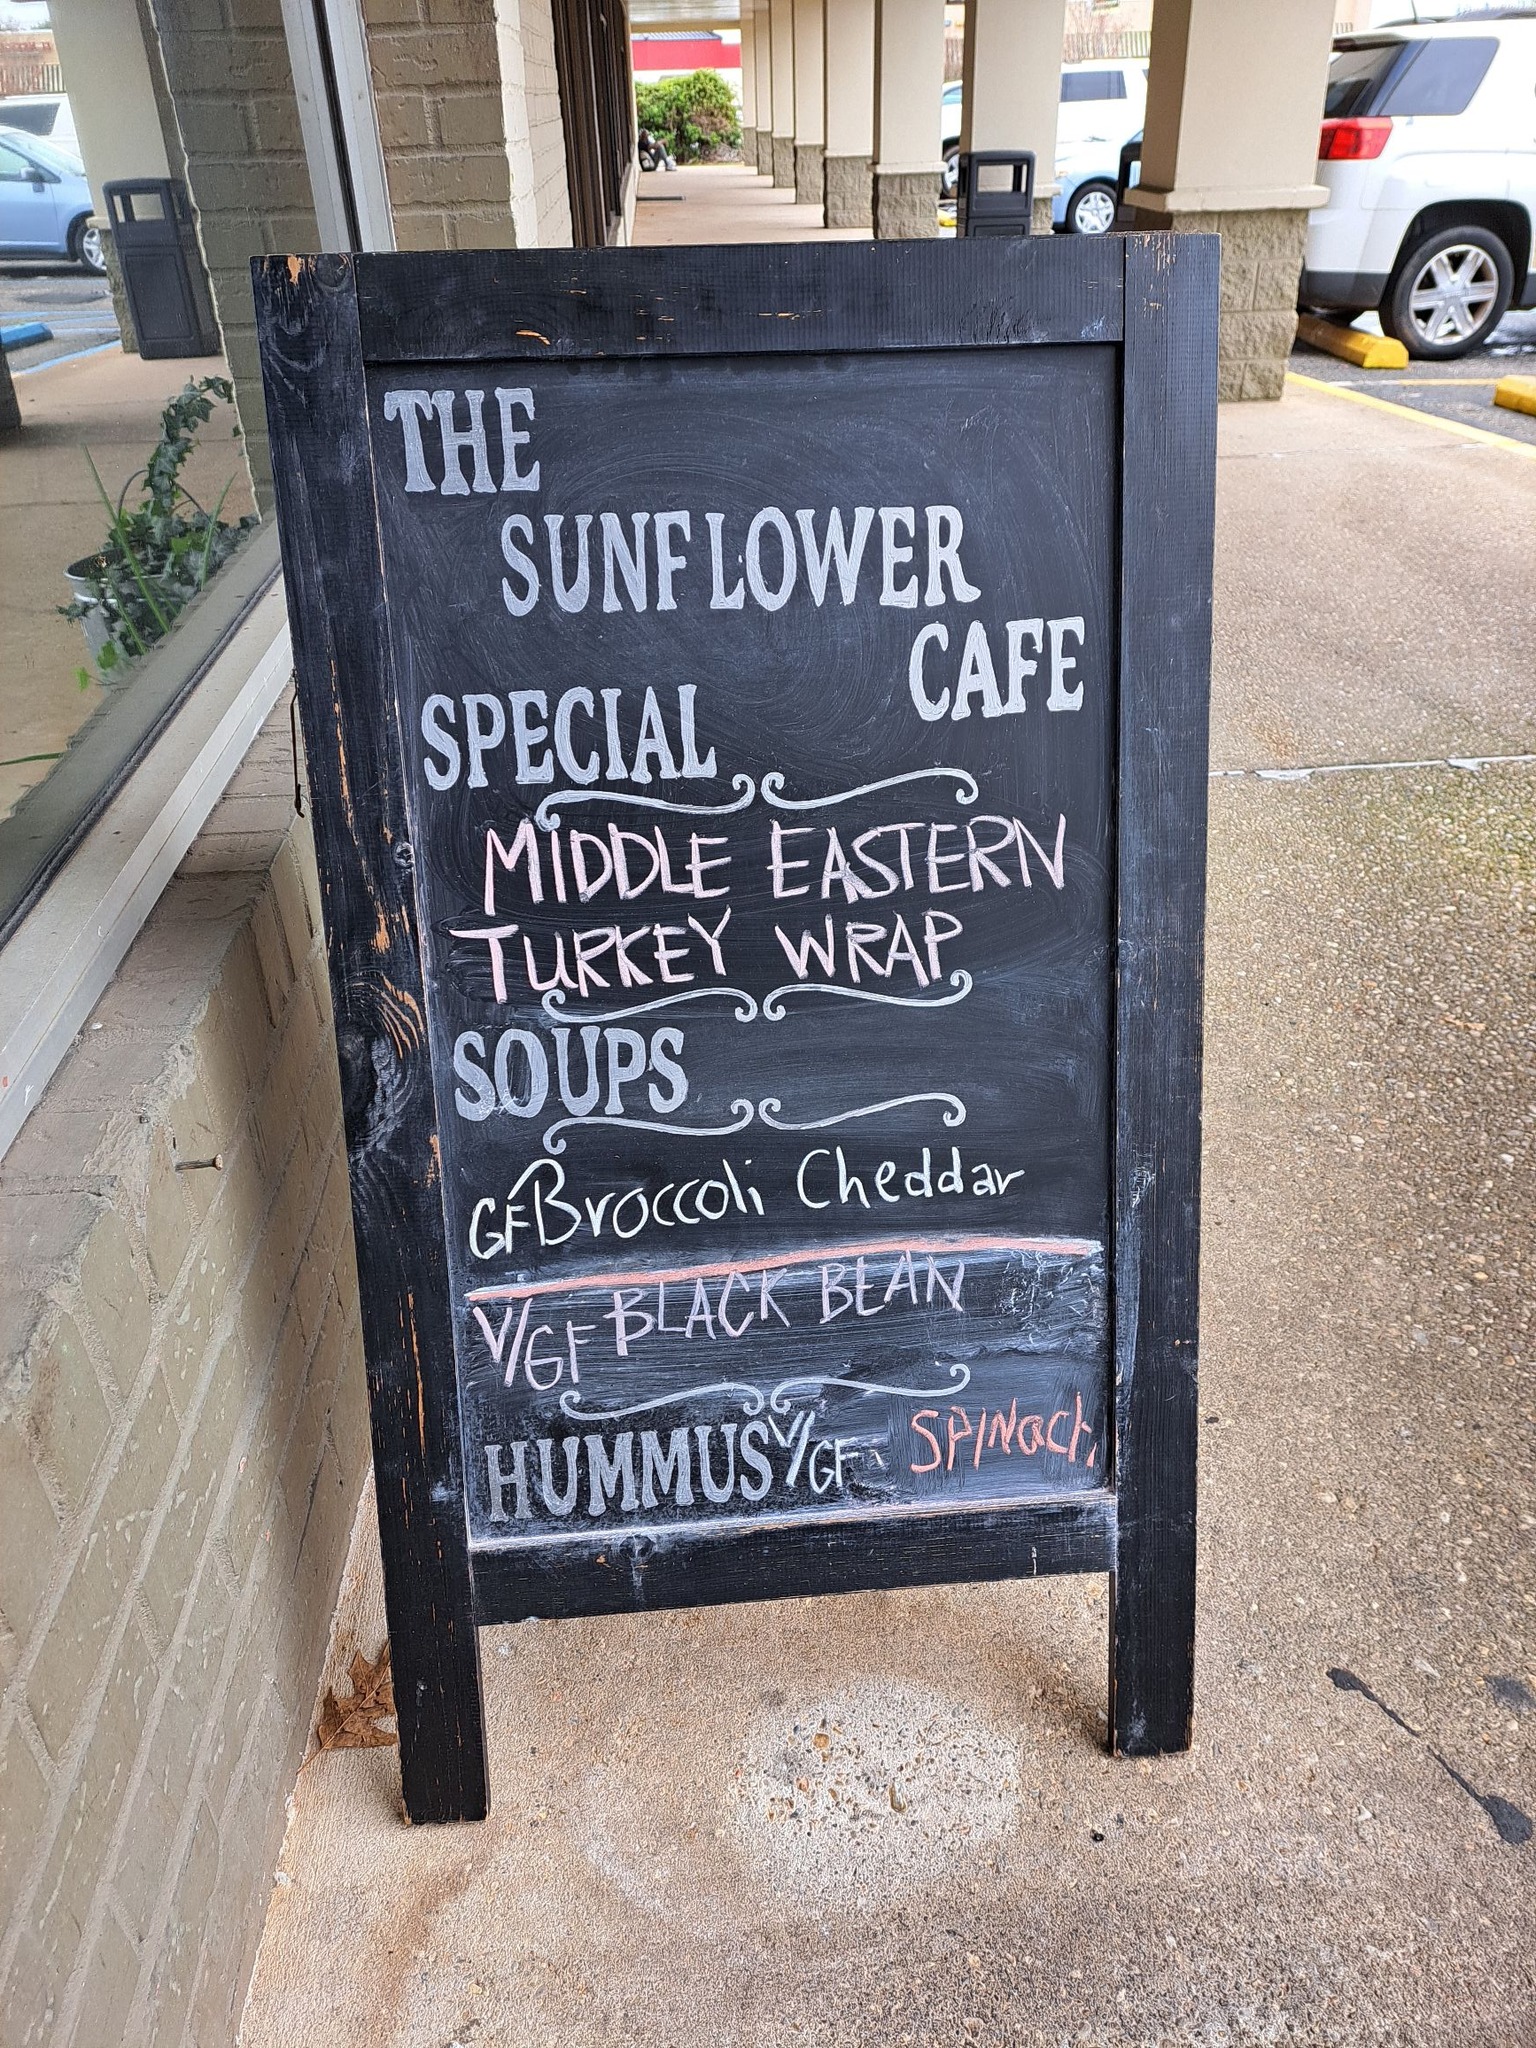 THE
SUNFLOWER
CAFE
SPECIAL
MIDDLE EASTERN
TURKEY WRAP
SOUPS
GF Broccoli Cheddar
V/GF BLACK BEAN
HUMMUS V/GF SPINach